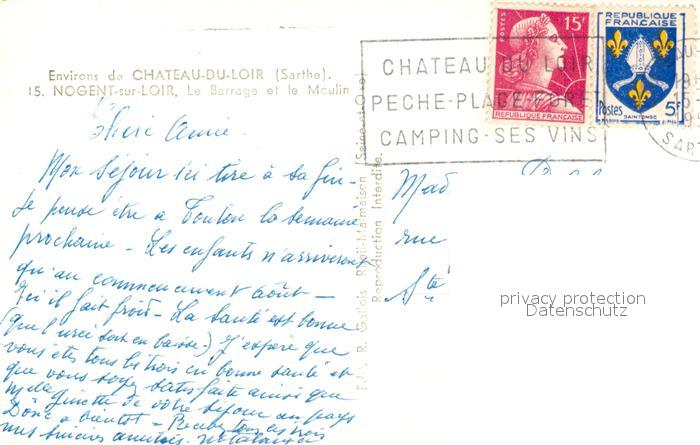 Environs de CHATEAU-DU-LOIR (Sarthe).
15. NOGENT-sur-LOIR, Le Barrage et le Moulin
Chère Amie
Mon séjour ici tire à sa fin.
Je pense être à Toulon la semaine
prochaine - Les enfants n'arriveront
qu'au commencement août -
Ici il fait froid - La santé est bonne
(que l'urée soit en baisse.) J'espère que
vous êtes tous les trois en bonne santé et
que vous soyez satisfaite ainsi que
Mlle Ginette de votre séjour au pays
Donc à bientôt - Recevez tous les trois
mes sincères amitiés.
E. R. Gallois Rueil-Malmaison (Seine-et-Oise)
Reproduction Interdite.
POSTES
15F
REPUBLIQUE FRANÇAISE
REPUBLIQUE
FRANÇAISE
Postes
SAINTONGE
5F
CHATEAU DU LOIR
PECHE-PLAGE-FORET
CAMPING-SES VINS
SART
Mad
rue
Ste
privacy protection
Datenschutz